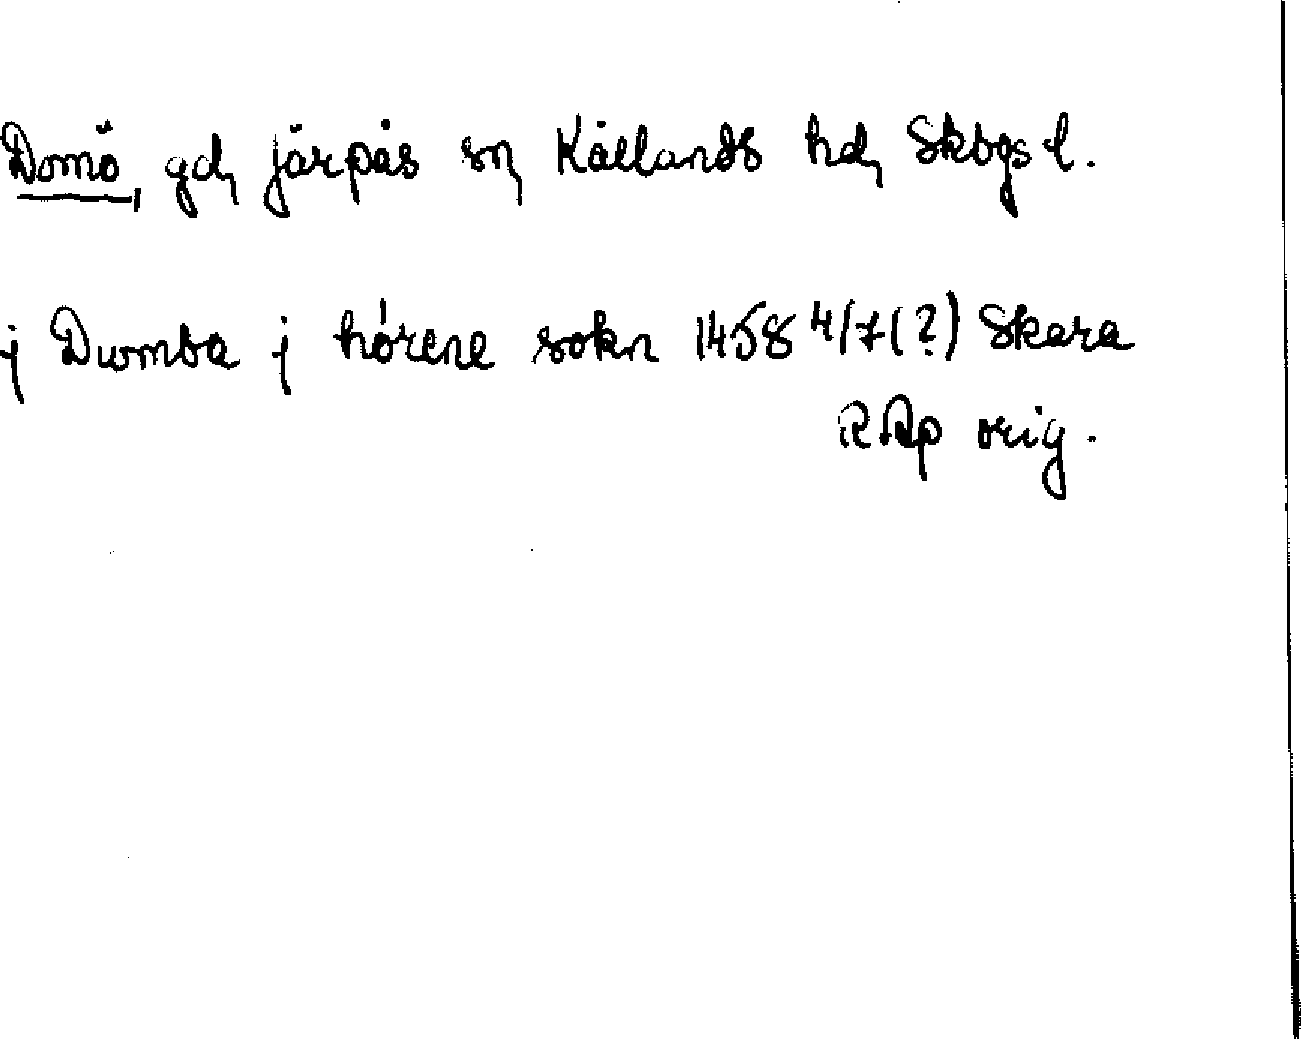 Domö, gd, järpås sn, Kållands hd, Skbgs l.
j Dumba j hórene sokn 1458 4/7(?) Skara
RAp orig.